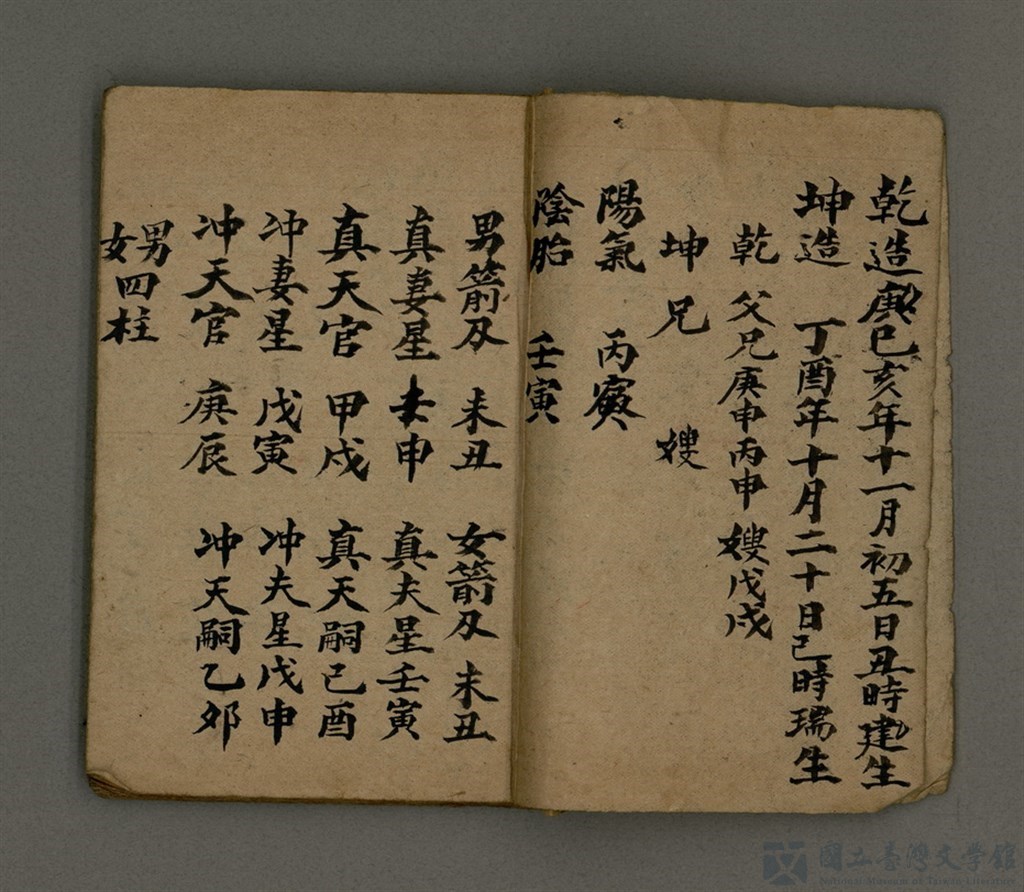 乾造庚己亥年十一月初五日丑時建生
坤造 丁酉年十月二十日己時瑞生
乾 父兄庚申丙申 嫂戊戌
坤 兄 嫂
陽氣 丙寅
陰胎 壬寅
男箭刄 未丑 女箭刄 未丑
真妻星 申 真夫星壬寅
真天官 甲戌 真天嗣己酉
冲妻星 戊寅 冲夫星戊申
冲天官 庚辰 冲天嗣乙夘
男女四柱
國立臺灣文學館
National Museum of Taiwan Literature